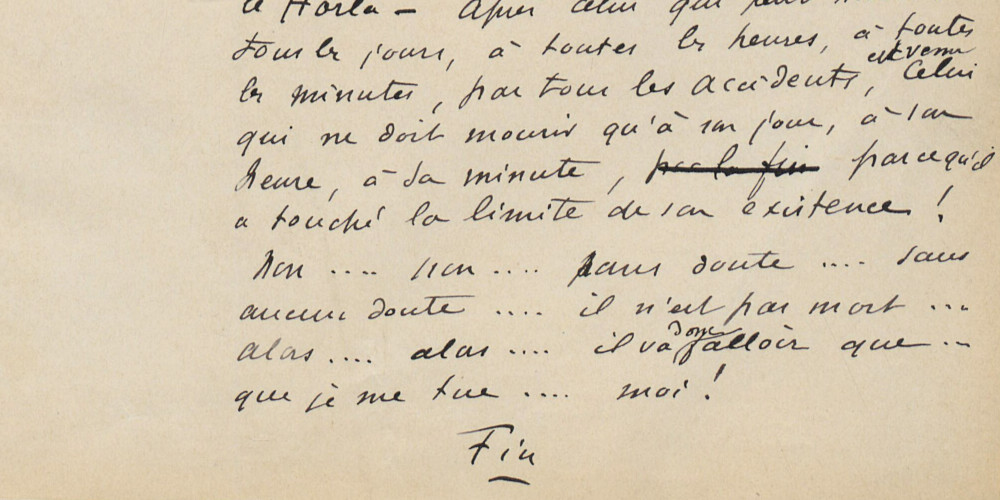 le Horla – Après celui qui peut
tous les jours, à toutes les heures, à toutes
les minutes, par tous les accidents, est venu Celui
qui ne doit mourir qu'à son jour, à son
heure, à sa minute, par la fin parcequ'il
a touché la limite de son existence !
Non .... non .... sans doute .... sans
aucun doute .... il n'est pas mort ...
alors .... alors .... il va donc falloir que ...
que je me tue .... moi !
Fin